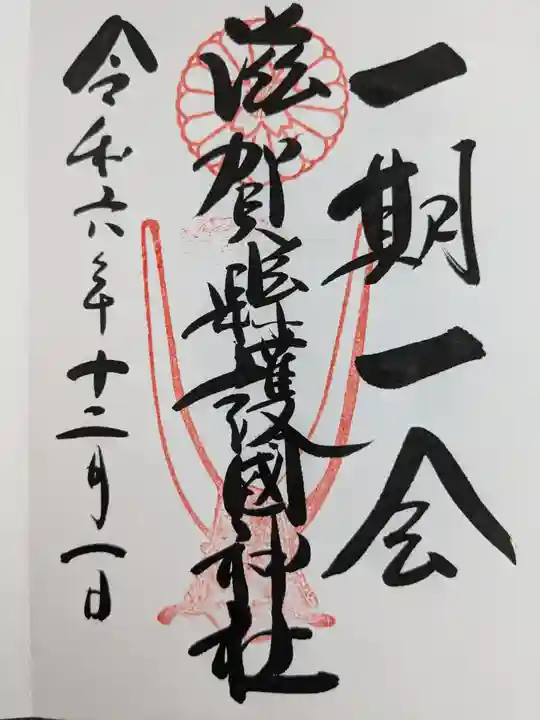 一期一会
滋賀縣護國神社
令和六年十二月一日